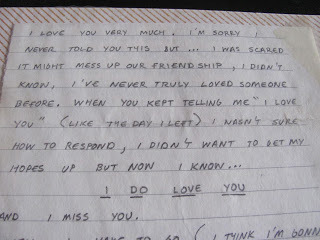 I LOVE YOU VERY MUCH. I'M SORRY I
NEVER TOLD YOU THIS BUT... I WAS SCARED
IT MIGHT MESS UP OUR FRIENDSHIP, I DIDN'T
KNOW, I'VE NEVER TRULY LOVED SOMEONE
BEFORE. WHEN YOU KEPT TELLING ME "I LOVE
YOU" (LIKE THE DAY I LEFT) I WASN'T SURE
HOW TO RESPOND, I DIDN'T WANT TO GET MY
HOPES UP BUT NOW I KNOW...
I DO LOVE YOU
AND I MISS YOU.
HAVE TO GO (I THINK I'M GONN